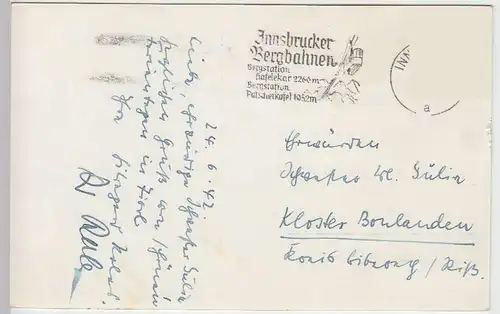 Innsbrucker
Bergbahnen
Bergstation
Hafelekar 2260m
Bergstation
Patscherkofel 1952m
INN
a
24.6.42
Liebe, ehrwürdige Schwester Julia
herzlichen Gruß von schönen
in Tirol
Ehrwürden
Schwester M. Julia
Kloster Bonlanden
Kreis Biberach / Riß.